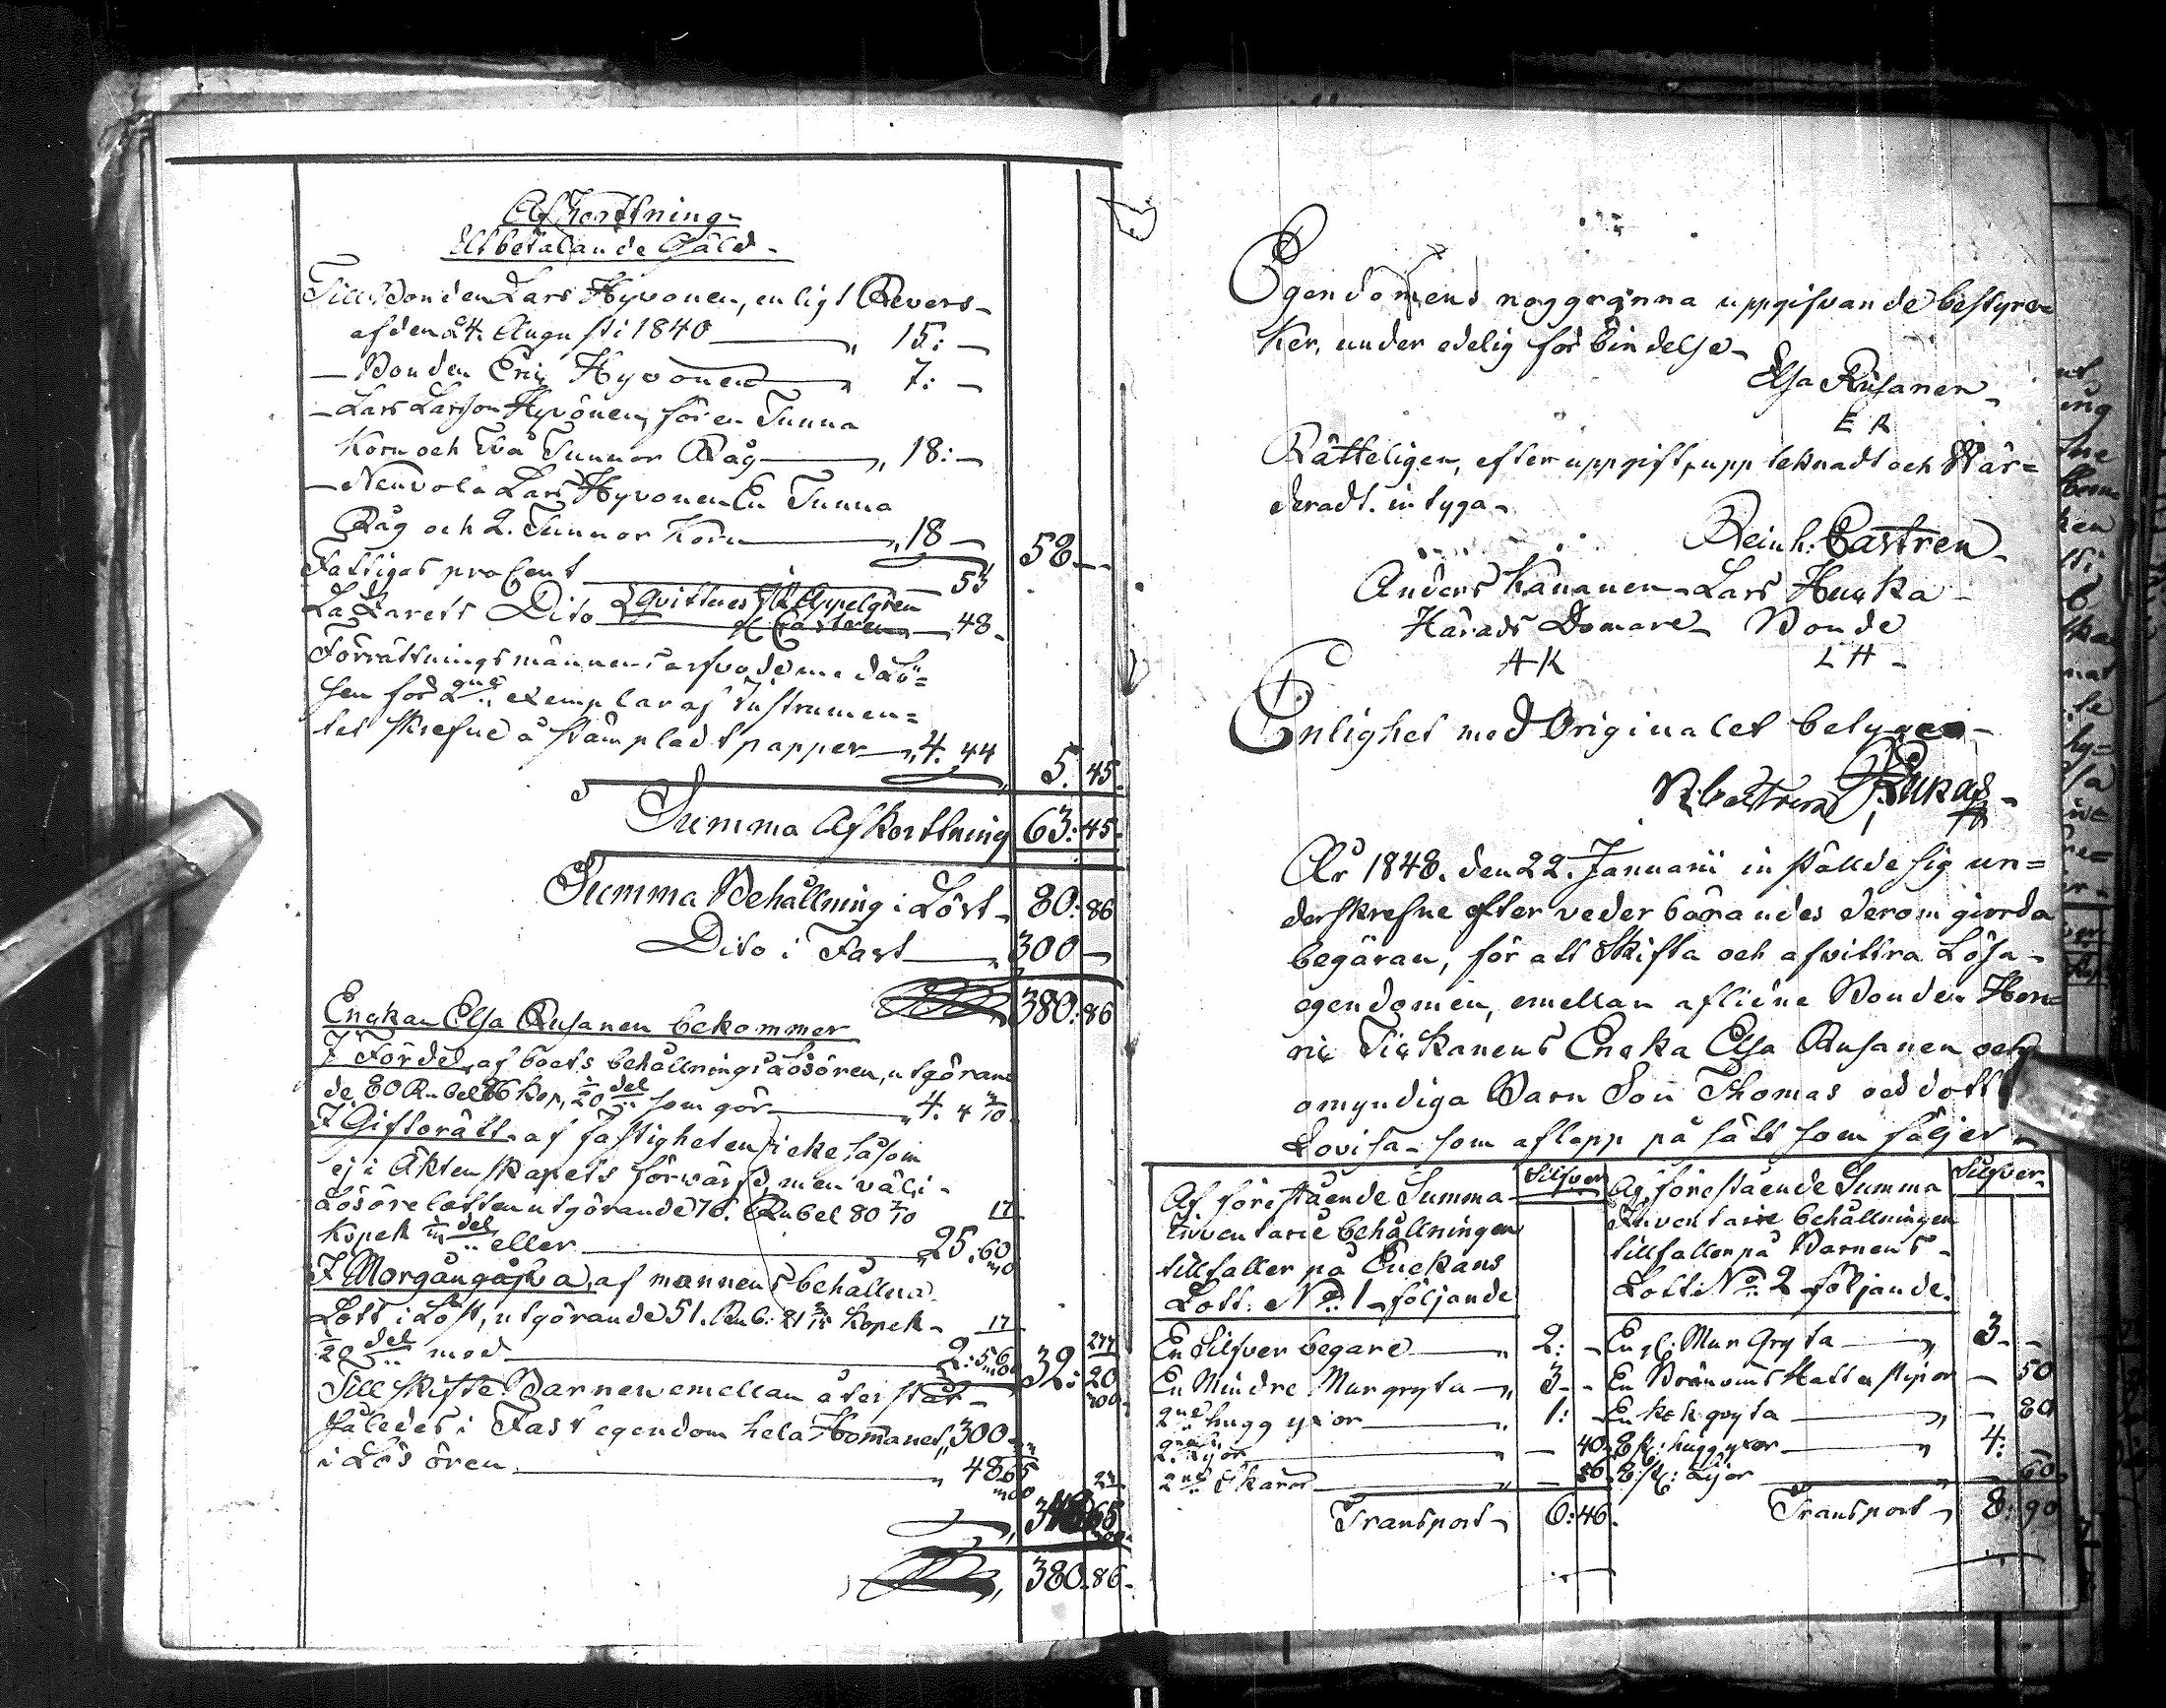 Afkorttning
Utbetalande Gäld
Till Bonden Lars Hyvönen, enligt Revers
af den 24. Augusti 1840 15:
Bonden Eric Hyvönen 7:
Lars Larsson Hyvönen, för en Tunna
Korn och två Tunnor Råg 18:
Neuvola Lars Hyvonen En Tunna
Råg och 2. Tunnor Korn 18 58
Fattigas procent 53
Lazarets Dito Qvitteras Appelgren 48
Castren
Förrättningsmännens arfvode med Lö=
sen för 2ne exemplar af Instrumen=
tet skrefne å stämpladt papper 4. 44 5. 45
Summa Afkorttning 63: 45
Summa Behållning i Löst 80: 86
Dito i Fast 300
380: 86
Enkan Elsa Rusanen bekommer
I Fördel af boets behållning i Lösören, utgöran
de 80 Rubel 86 kop, 1/20 del som gör 4. 4 3/10
I Giftorätt af fastigheten icke såsom
ej i Äktenskapets förwärfd, men väl i
Lösörelotten utgörande 76. Rubel 80 7/10
Kopek 1/3 del eller 25. 60
I Morgångåfva, af mannens behållna
Lott i Löst, utgörande 51. Rub: 21 Kopek 17
1/20 del med 2: 56 32: 20
Till skifte Barnen emellan återstår
således i Fast egendom hela Hemmanet 300
i Lösören 48 65
380. 86
Egendomens noggranna uppgifvande bestyr=
ker, under edelig förbindelse
Elsa Rusanen
E R
Rätteligen, efter uppgift, upptecknadt och Wär=
deradt. intyga
Reinh: Castren
Anders Kananen Lars Huska
Härads Domare Bonde
A K L H
Enlighet med Originalet betygar
År 1848. den 22. Januarii inställde sig un=
derskrefne efter vederbörandes derom gjorda
begäran, för att skifta och afvittra Lösa
egendomen, emellan aflidne Bonden Hen=
ric Tickanens Encka Elsa Rusanen och
omyndiga Barn Son Thomas och dott
Lovisa som aflopp på sätt som följer
Af förestående Summa Silfver
Inventarie behållningen
tillfaller på Enckans
Lott: No 1 följande
En Silfver begare 2:
En Mindre Murgryta 3
2ne huggyxor 1:
2. Lijor 40
2ne Skäror
Transport 6: 46
Af förestående Summa Silfver
Inventarie behållningen
tillfaller på Barnens
Lott No 2 följande
En st: Mur Gryta 3
En Bränvins Hatt 50
En kok gryta 80
st: huggyxor 4:
st: Lijor 60
Transport 8: 90